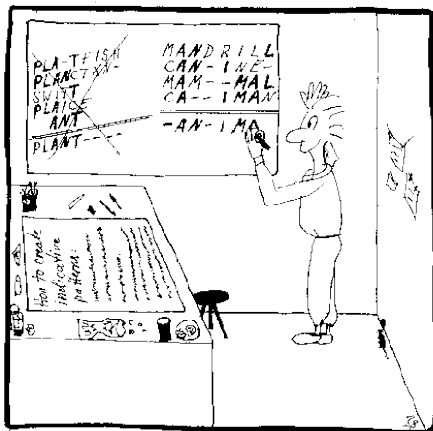 PLA-TFISH
PLANCTON-
SWITT
PLAICE
ANT
PLANT----
MANDRILL
CAN-INE-
MAM--MAL
CA--IMAN
-AN-IMA
How to create
indicative
patterns: